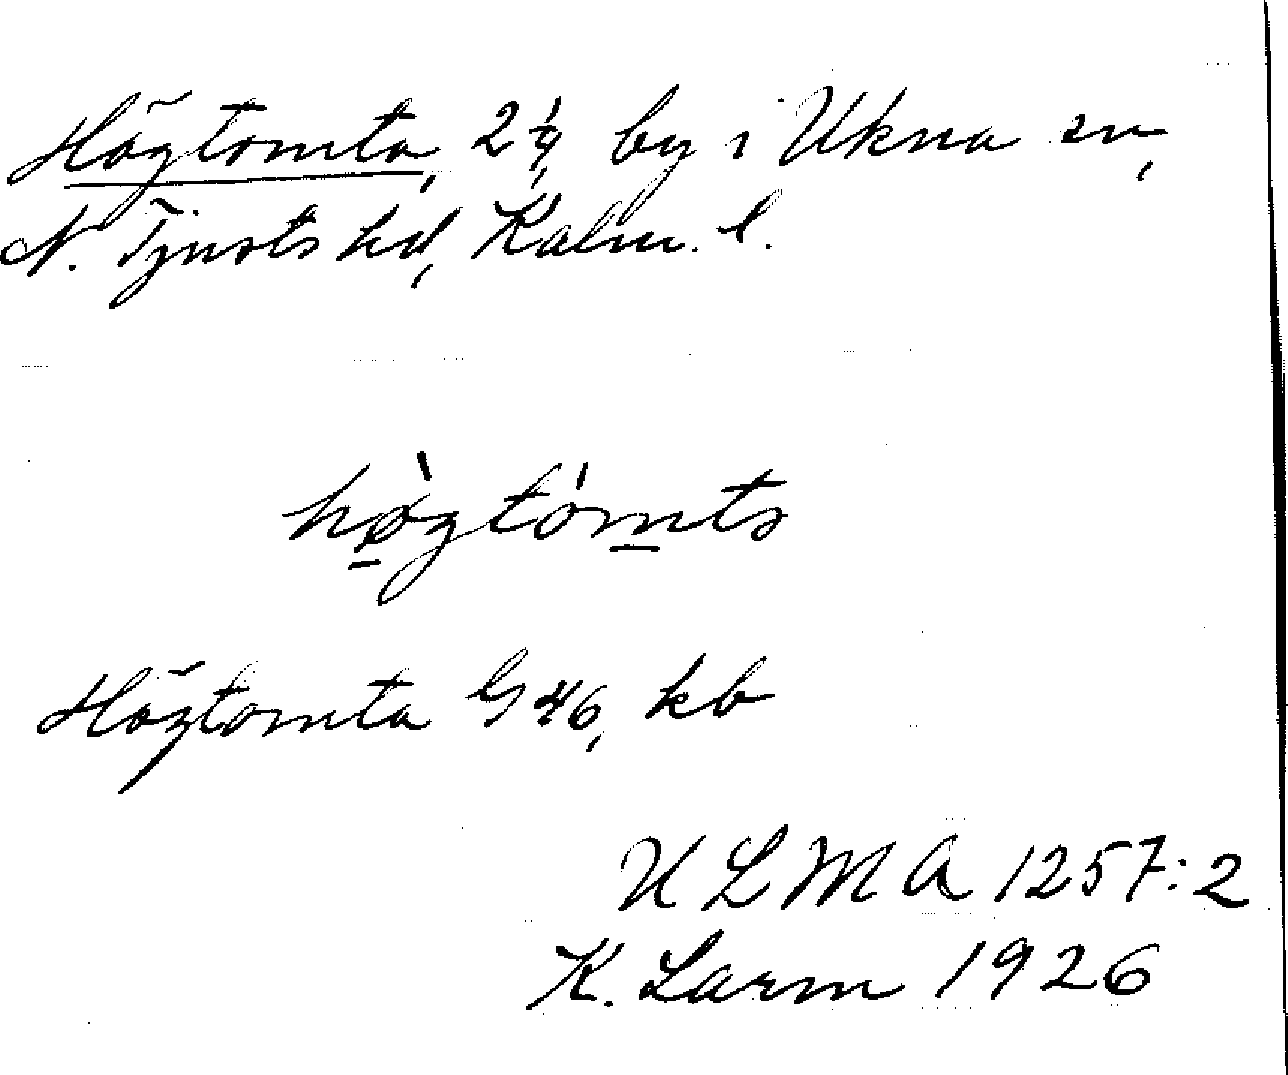 Högtomta, 2 1/4, by i Ukna sn,
N. Tjusts hd, Kalm. l.
hø̀gtómta
Högtomta G 46, kb
ULMA 1257:2
K. Larm 1926